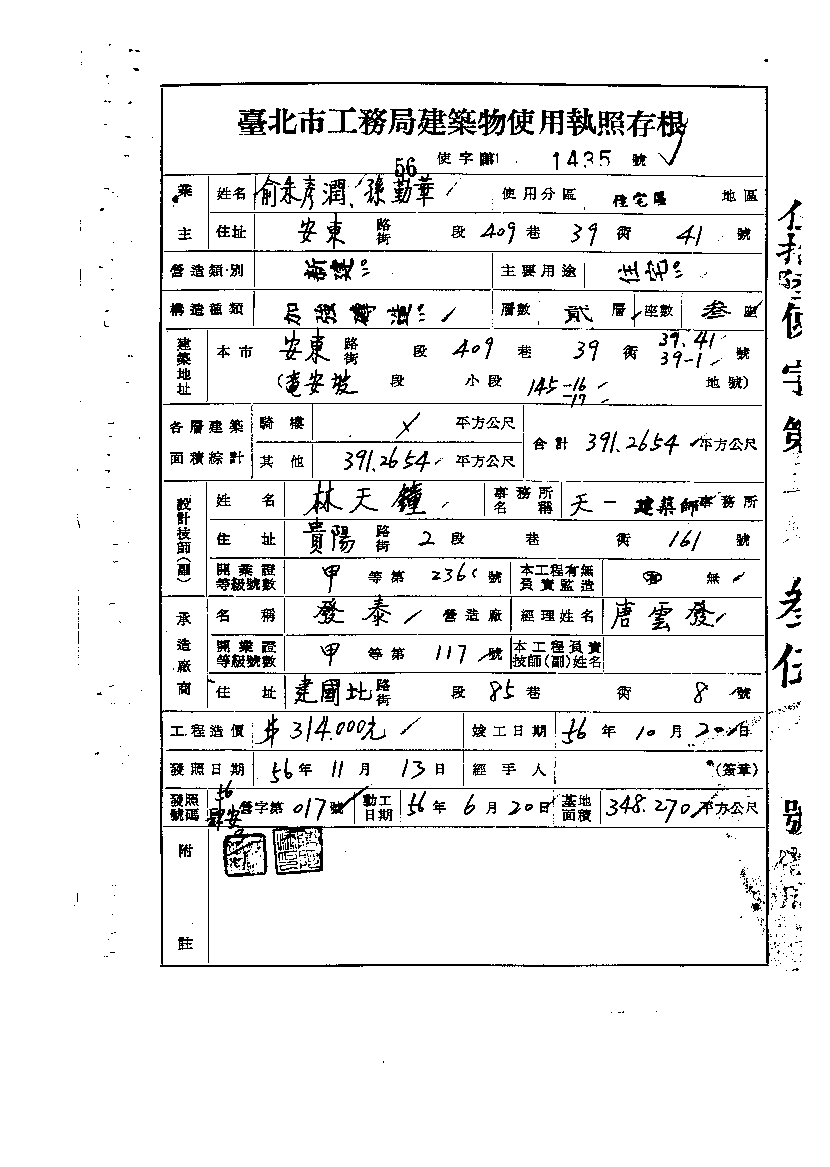 臺北市工務局建築物使用執照存根
56 使字第 1435 號
業主 姓名 俞朱彥潤、孫勤華 使用分區 住宅區 地區
住址 安東 路街 段 409 巷 39 衖 41 號
營造類別 新建 主要用途 住宅
構造種類 加強磚造 層數 貳 層 座數 叁 座
建築地址 本市 安東 路街 段 409 巷 39 衖 39.41 39-1 號
(龍安坡 段 小段 145-16 -17 地號)
各層建築面積綜計 騎樓 X 平方公尺 合計 391.2654 平方公尺
其他 391.2654 平方公尺
設計技師(副) 姓名 林天鐘 事務所名稱 天一建築師事務所
住址 貴陽 路街 2 段 巷 衖 161 號
開業證等級號數 甲 等第 號 本工程有無負責監造 無
承造廠商 名稱 發泰 營造廠 經理姓名 唐雲發
開業證等級號數 甲 等第 117 號 本工程負責技師(副)姓名
住址 建國北 路街 段 85 巷 衖 8 號
工程造價 $314.000元 竣工日期 56 年 10 月 20 日
發照日期 56 年 11 月 13 日 經手人 (簽章)
發照號碼 56 營字第 017 號 動工日期 56 年 6 月 20 日 基地面積 348.270 平方公尺
附註
使字第
叁仁
號